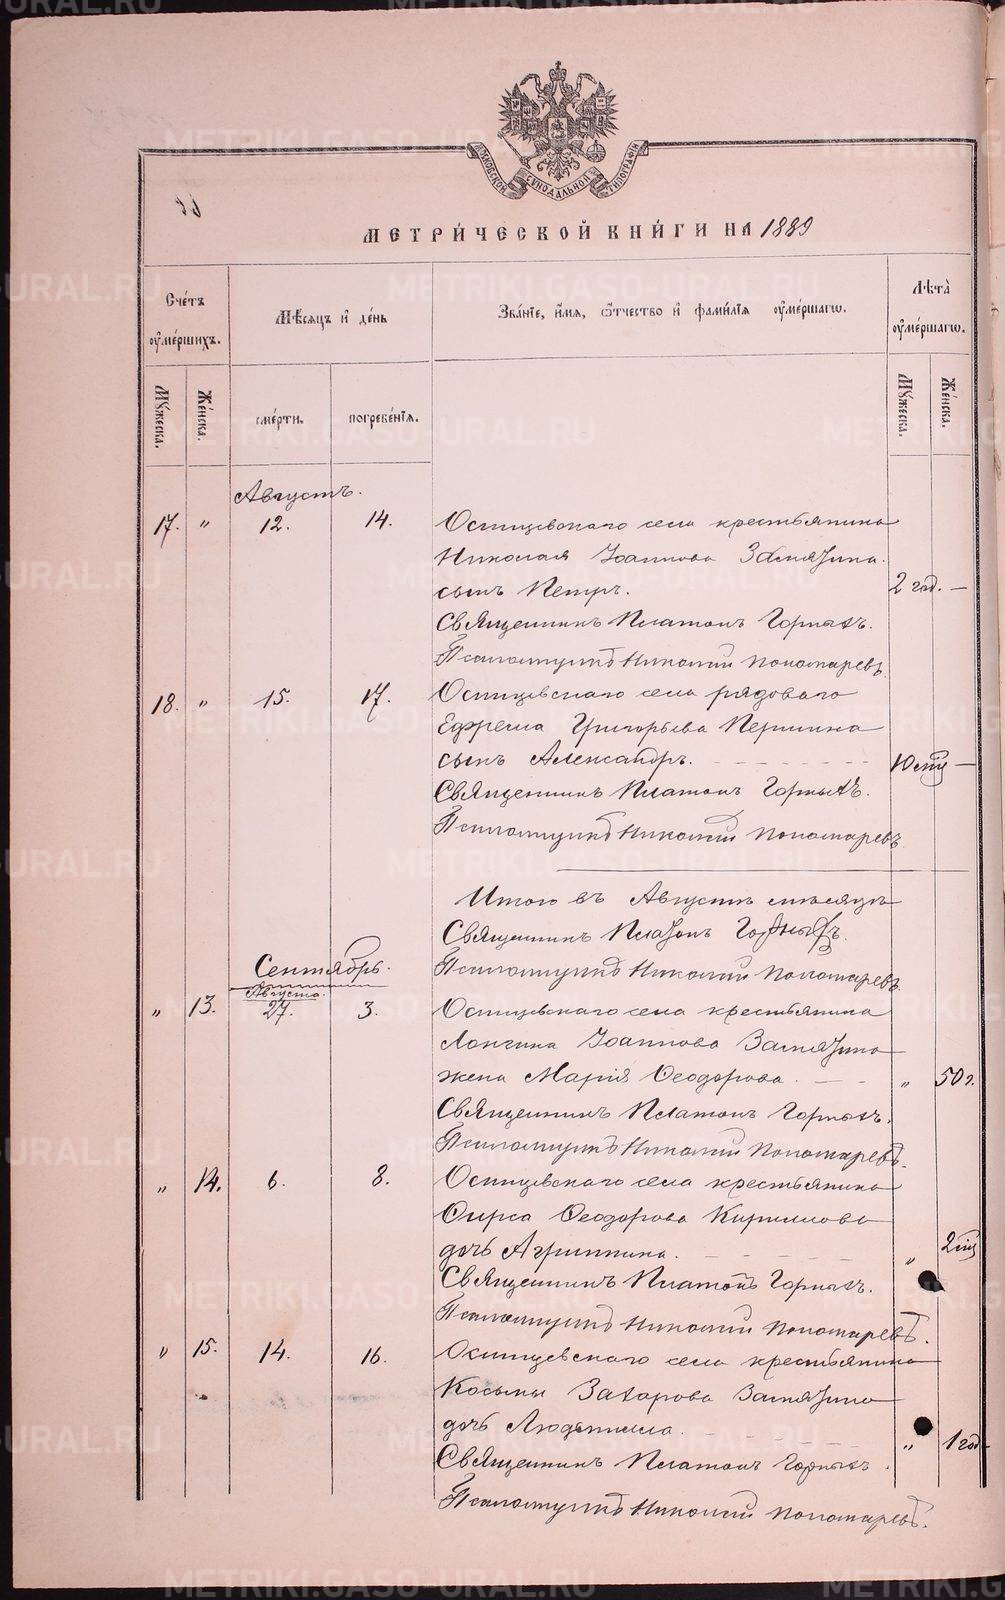 МОСКОВСКОЙ СѴНОДАЛЬНОЙ ТИПОГРАФІИ
МЕТРИ́ЧЕСКОЙ КНИ́ГИ НА 1889
Сче́тъ оу҆ме́ршихъ.
Мѣ́сяцъ и҆ де́нь
Зва́нїе, и҆́мя, ѻ҆́тчество и҆ фами́лїя оу҆ме́ршагѡ.
Лѣта̀ оу҆ме́ршагѡ.
Мꙋ́жеска.
Же́нска.
сме́рти.
погребе́нїя.
Мꙋ́жеска.
Же́нска.
Августъ.
17. " 12. 14. Осинцевскаго села крестьянина
Николая Іоаннова Замятина
сынъ Петръ. 2 год. —
Священникъ Платонъ Горныхъ.
Псаломщикъ Николай Пономаревъ
18. " 15. 17. Осинцевскаго села рядоваго
Ефрема Григорьева Першина
сынъ Александръ. 10 мц —
Священникъ Платонъ Горныхъ.
Псаломщикъ Николай Пономаревъ
Итого въ Августѣ мѣсяцѣ
Священникъ Платонъ Горныхъ.
Псаломщикъ Николай Пономаревъ
Сентябрь.
Августа.
" 13. 27. 3. Осинцевскаго села крестьянина
Лонгина Іоаннова Замятина
жена Марія Ѳеодорова. — " 50 г.
Священникъ Платонъ Горныхъ.
Псаломщикъ Николай Пономаревъ.
" 14. 6. 8. Осинцевскаго села крестьянина
Ѳирса Ѳеодорова Кириллова
дочь Агриппина. " 2 мц
Священникъ Платонъ Горныхъ.
Псаломщикъ Николай Пономаревъ.
" 15. 14. 16. Осинцевскаго села крестьянина
Косьмы Захарова Замятина
дочь Людмилла. " 1 год
Священникъ Платонъ Горныхъ.
Псаломщикъ Николай Пономаревъ.
METRIKI.GASO-URAL.RU